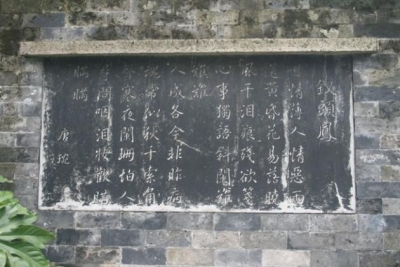 釵頭鳳
世情薄人情惡雨
送黃昏花易落曉
風干淚痕殘欲箋
心事獨語斜闌難
難難
人成各今非昨病
魂常似秋千索角
聲寒夜闌珊怕人
尋問咽淚妝歡瞞
瞞瞞
唐琬